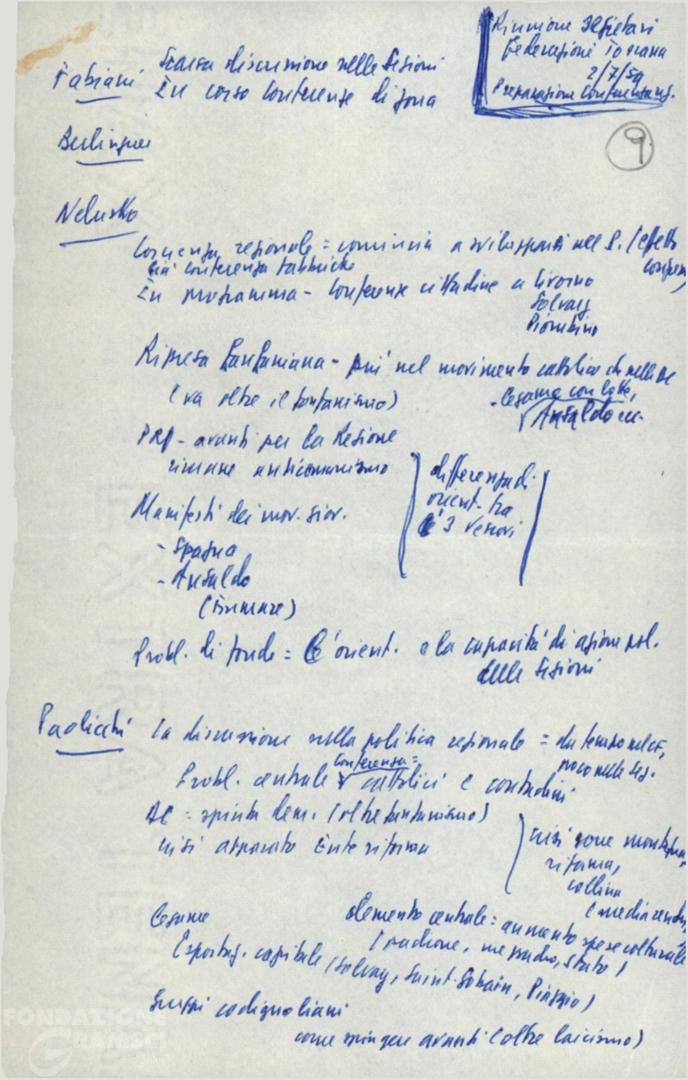 Riunione Segretari
Federazioni Toscana
2/7/59
Preparazione Conferenza reg.
9
Fabiani Scarsa discussione nelle Sezioni
In corso Conferenze di zona
Berlinguer
Nelusko
regionale = comincia a svilupparsi nel P. (effetto
già conferenza fabbriche
In programma - Conferenze cittadine a Livorno
Solvay
Piombino
Ripresa Fanfaniana - più nel movimento cattolico che nella DC
(va oltre il fanfanismo)
- Legame con lotte,
Ansaldo ecc.
PRI - avanti per la Regione
rimane anticomunismo
differenza di
orient. tra
i 3 Vescovi
Manifesti dei mov. giov.
- Spagna
- Ansaldo
(firmare)
Probl. di fondo = L'orient. e la capacità di azione pol.
delle Sezioni
Paolicchi La discussione sulla politica regionale = da tempo nel CF,
poco nelle sez.
Conferenza =
Probl. centrale cattolici e contadini
DC = spinta dem. (oltre fanfanismo)
crisi apparato Ente riforma
crisi zone montagna,
riforma,
collina
(mezzadria
Legame elemento centrale = aumento spese colturali
(padrone, mezzadro, Stato)
Esportaz. capitale (Solvay, Saint-Gobain, Piaggio)
Gruppi codignoliani
come spingere avanti (oltre laicismo)
FONDAZIONE
GRAMSCI